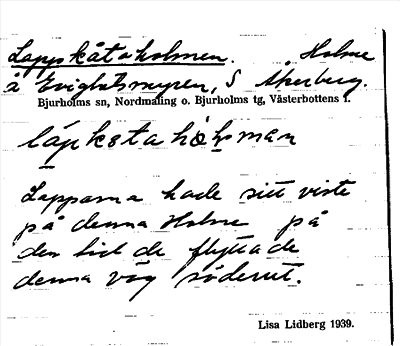 Lappkåtaholmen. Holme
å Evighetsmyren, S Åkerberg.
Bjurholms sn, Nordmaling o. Bjurholms tg, Västerbottens l.
Lapparna hade sitt viste
på denna Holme på
den tid de flyttade
denna väg söderut.
Lisa Lidberg 1939.